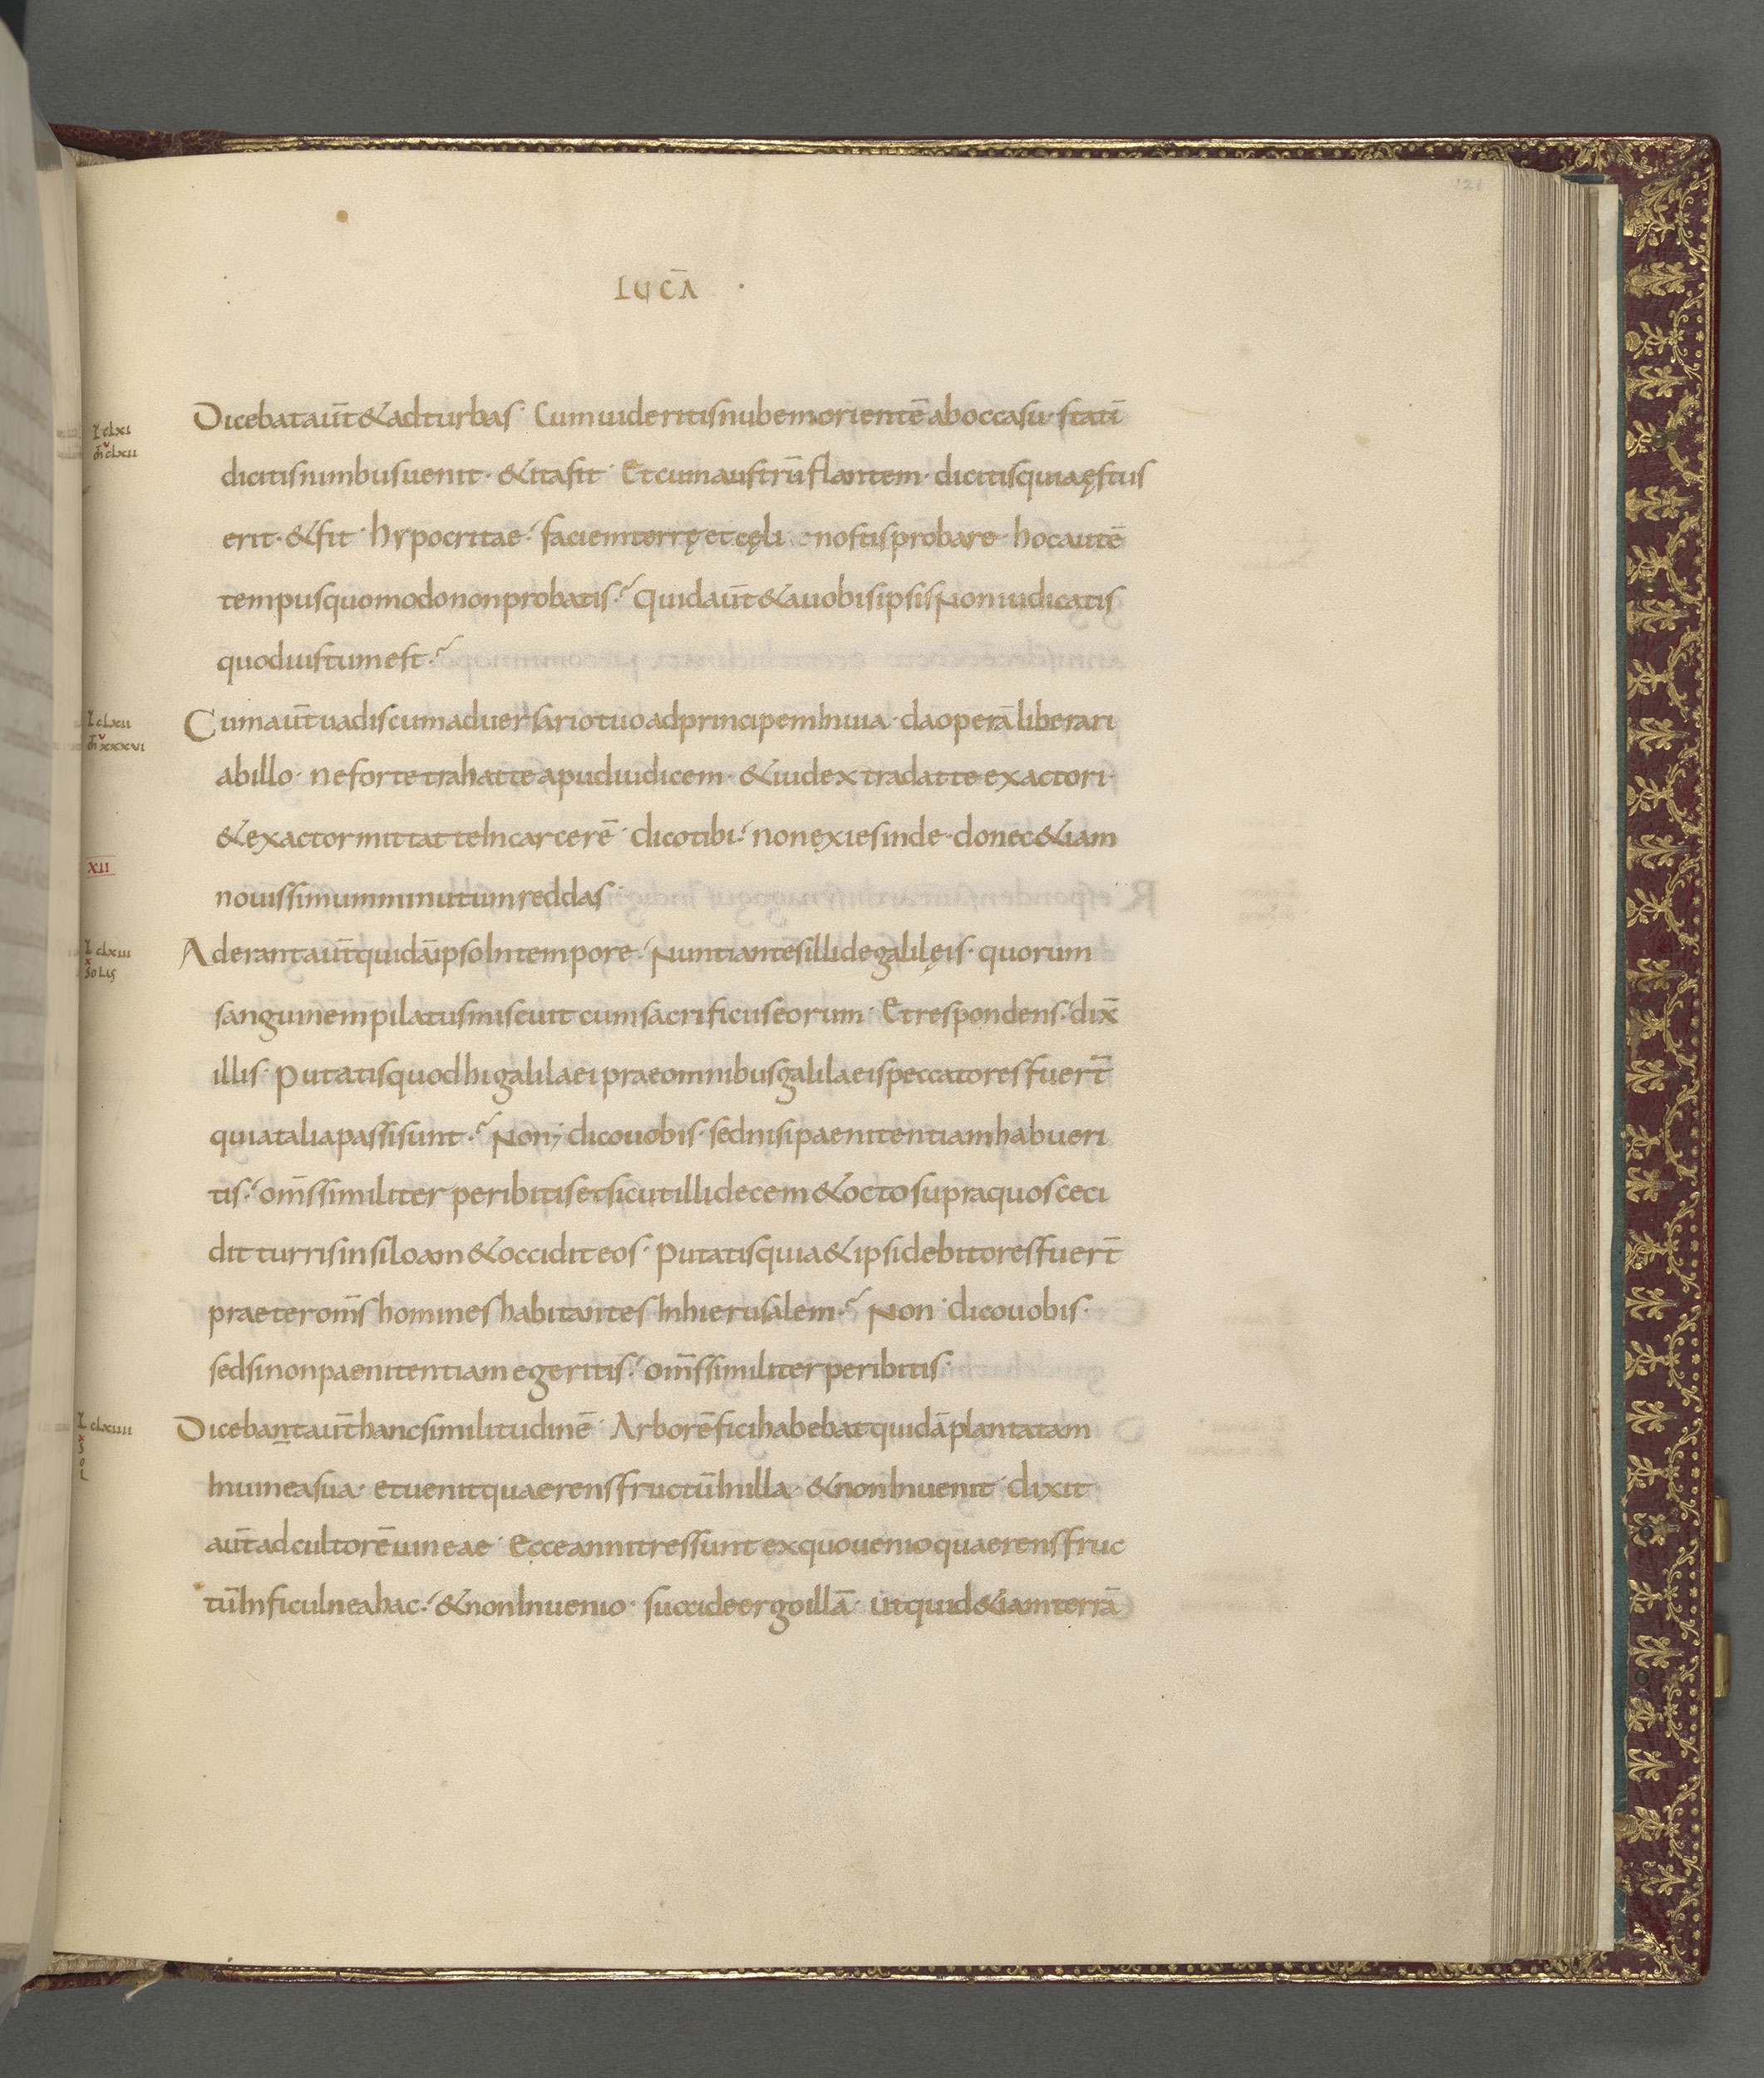 121
LUCĀ
Dicebat aūt & ad turbas · Cum uideritis nubem orientē ab occasu · statī
dicitis nimbus uenit · & ita fit · Et cum austrū flantem · dicitis quia ęstus
erit · & fit · hypocritae · faciem terrę et cęli nostis probare · hoc autē
tempus quomodo non probatis · Quid aūt & a uobis ipsis Non iudicatis
quod iustum est ·
Cum aūt uadis cum aduersario tuo ad principem In uia · da operā liberari
ab illo · ne forte trahat te apud iudicem · & iudex tradat te exactori ·
& exactor mittat te In carcerē · dico tibi · non exies inde · donec &iam
nouissimum minutum reddas ·
Aderant aūt quidā ipso In tempore · Nuntiantes illi de galilęis · quorum
sanguinem pilatus miscuit cum sacrificiis eorum · Et respondens · dix̄
illis · Putatis quod hi galilaei prae omnibus galilaeis peccatores fuer̄t
quia talia passi sunt · Non; dico uobis · sed nisi paenitentiam habueri
tis · om̄s similiter peribitis et sicut illi decem & octo supra quos ceci
dit turris in siloam & occidit eos · Putatis quia & ipsi debitores fuer̄t
praeter om̄s homines habitantes In hierusalem · Non · dico uobis ·
sed si non paenitentiam egeritis · om̄s similiter peribitis ·
Dicebant aūt hanc similitudinē · Arborē fici habebat quidā plantatam
In uinea sua · et uenit quaerens fructū In illa · & non Inuenit · dixit
aūt ad cultorē uineae · Ecce anni tres sunt ex quo uenio quaerens fruc
tū In ficulnea hac · & non Inuenio · succide ergo illā · ut quid &iam terrā
L clxi
m̄ v clxii
L clxii
m̄ v xxxvi
XII
L clxiii
x
SOLIS
L clxiiii
x
S
O
L